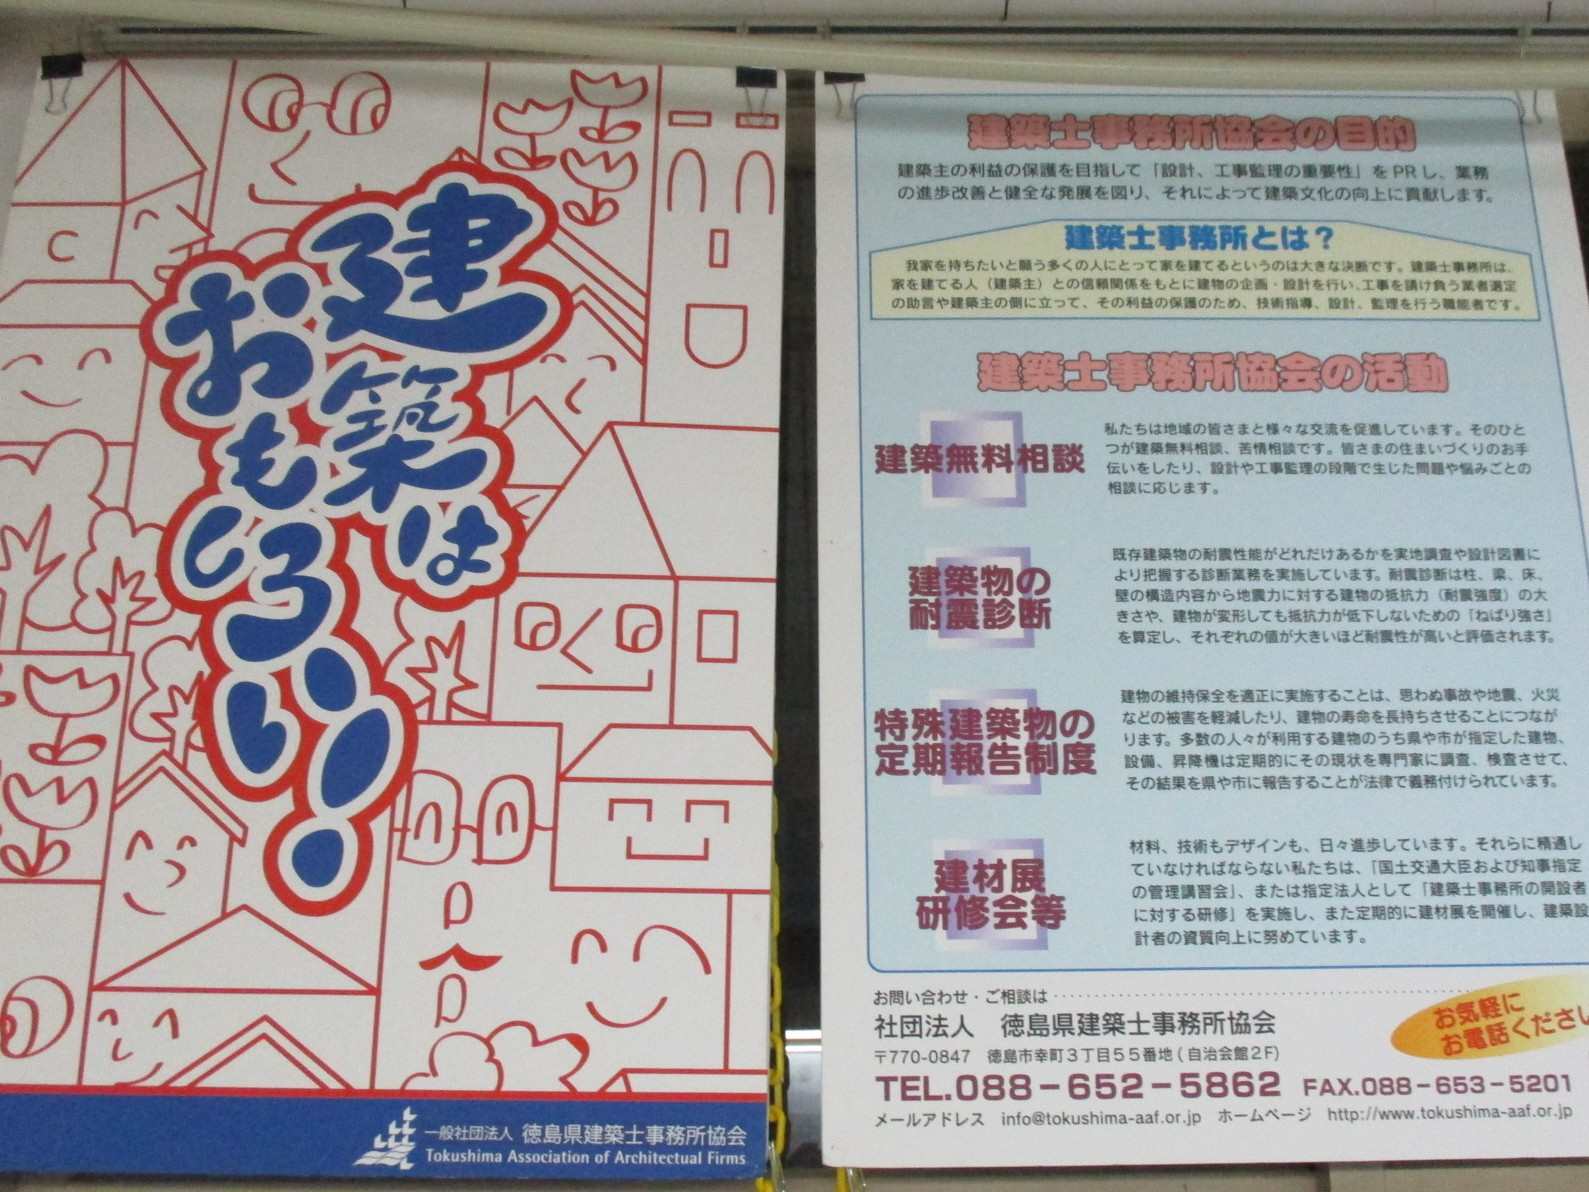 建築は
おもしろい!
一般社団法人 徳島県建築士事務所協会
Tokushima Association of Architectural Firms
建築士事務所協会の目的
建築主の利益の保護を目指して「設計、工事監理の重要性」をPRし、業務
の進歩改善と健全な発展を図り、それによって建築文化の向上に貢献します。
建築士事務所とは?
我家を持ちたいと願う多くの人にとって家を建てるというのは大きな決断です。建築士事務所は、
家を建てる人(建築主)との信頼関係をもとに建物の企画・設計を行い、工事を請け負う業者選定
の助言や建築主の側に立って、その利益の保護のため、技術指導、設計、監理を行う職能者です。
建築士事務所協会の活動
建築無料相談
私たちは地域の皆さまと様々な交流を促進しています。そのひと
つが建築無料相談、苦情相談です。皆さまの住まいづくりのお手
伝いをしたり、設計や工事監理の段階で生じた問題や悩みごとの
相談に応じます。
建築物の
耐震診断
既存建築物の耐震性能がどれだけあるかを実地調査や設計図書に
より把握する診断業務を実施しています。耐震診断は柱、梁、床、
壁の構造内容から地震力に対する建物の抵抗力(耐震強度)の大
きさや、建物が変形しても抵抗力が低下しないための「ねばり強さ」
を算定し、それぞれの値が大きいほど耐震性が高いと評価されます。
特殊建築物の
定期報告制度
建物の維持保全を適正に実施することは、思わぬ事故や地震、火災
などの被害を軽減したり、建物の寿命を長持ちさせることにつなが
ります。多数の人々が利用する建物のうち県や市が指定した建物、
設備、昇降機は定期的にその現状を専門家に調査、検査させて、
その結果を県や市に報告することが法律で義務付けられています。
建材展
研修会等
材料、技術もデザインも、日々進歩しています。それらに精通し
ていなければならない私たちは、「国土交通大臣および知事指定
の管理講習会」、または指定法人として「建築士事務所の開設者
に対する研修」を実施し、また定期的に建材展を開催し、建築設
計者の資質向上に努めています。
お問い合わせ・ご相談は
お気軽に
お電話ください
社団法人 徳島県建築士事務所協会
〒770-0847 徳島市幸町3丁目55番地(自治会館2F)
TEL.088-652-5862 FAX.088-653-5201
メールアドレス info@tokushima-aaf.or.jp ホームページ http://www.tokushima-aaf.or.jp